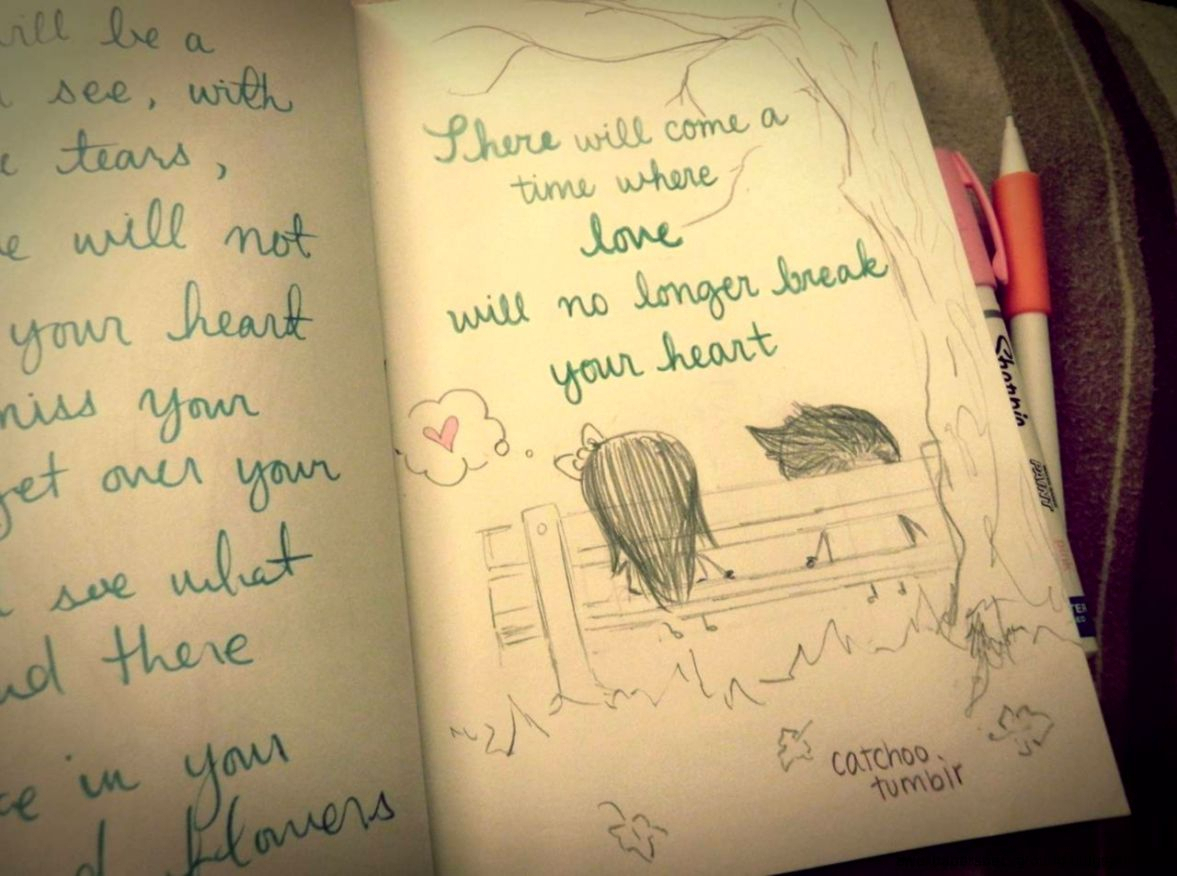 will be a
see, with
tears,
will not
your heart
miss your
get over your
see what
and there
in your
flowers
There will come a
time where
love
will no longer break
your heart
catchoo.
tumblr
Sharpie
PAINT